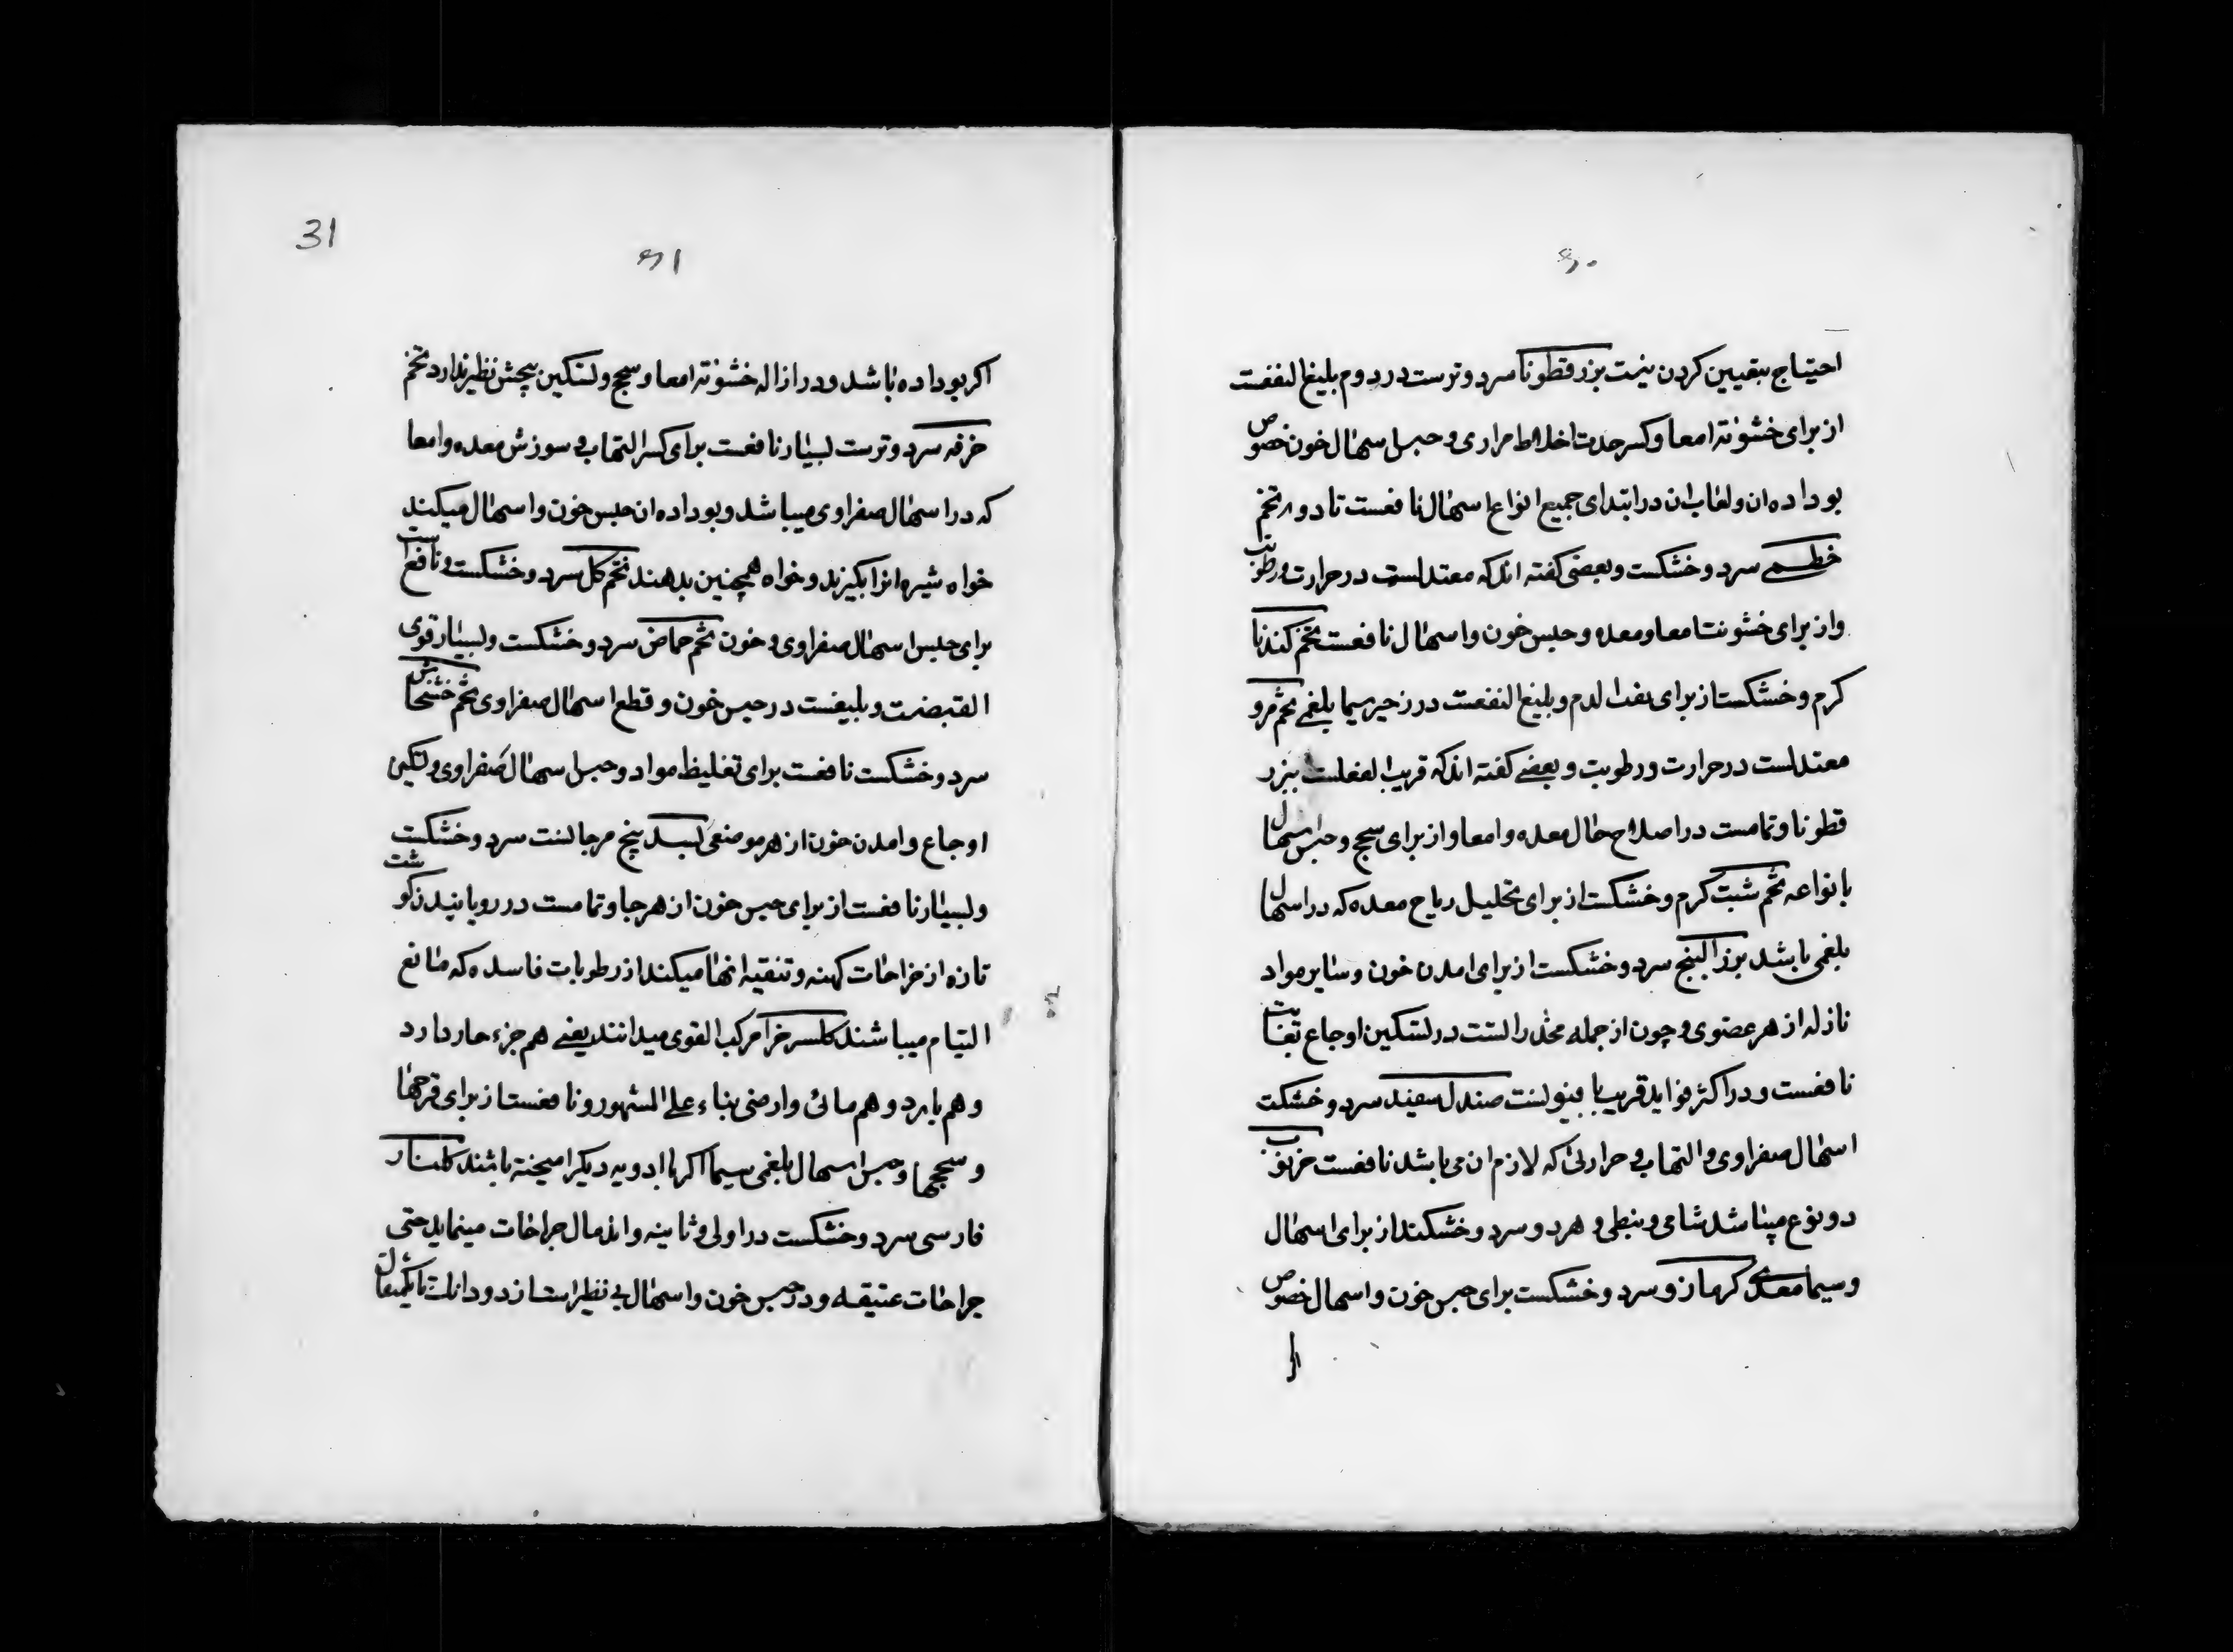 ۶۰
احتیاج بتعیین کردن نیست بزر قطونا سرد و ترست در دوم بلیغ النفعست
از برای خشونة امعا و کسر حدت اخلاط مراری و حبس اسهال خون خصوص
بوداده ان و لعاب ان در ابتدای جمیع انواع اسهال نافعست تا دوم تخم
خطمی سرد و خشکست و بعضی گفته اند که معتدلست در حرارت و رطوبت
و از برای خشونت امعا و معده و حبس خون و اسهال نافعست تخم کندنا
کرم و خشکست از برای نفث الدم و بلیغ النفعست در زحیر سیما بلغمی تخم مرو
معتدلست در حرارت و رطوبت و بعضی گفته اند که قریب الفعلست ببزر
قطونا و تمامست در اصلاح حال معده و امعا و از برای سحج و حبس اسهال
بانواعه تخم شبت کرم و خشکست از برای تحلیل ریاح معده که در اسهال
بلغمی باشد بزر البنج سرد و خشکست از برای امدن خون و سایر مواد
نازله از هر عضوی و چون از جمله مخدراتست در تسکین اوجاع بغایت
نافعست و در اکثر فواید قریب با فیونست صندل سفید سرد و خشکت
اسهال صفراوی و التهاب و حرارتی که لازم ان می باشد نافعست خرنوب
دو نوع میباشد شامی و نبطی و هر دو سرد و خشکند از برای اسهال
و سیما معدی کرمازو سرد و خشکست برای حبس خون و اسهال خصوص
اکر
31
۶۱
اکر بوداده باشد و در ازاله خشونة امعا و سحج و تسکین پیچش نظیر ندارد تخم
خرفه سرد و ترست بسیار نافعست برای کسر التهاب و سوزش معده و امعا
که در اسهال صفراوی میباشد و بوداده ان حبس خون و اسهال میکند
خواه شیره انرا بکیرند و خواه همچنین بدهند تخم کل سرد و خشکست و نافع است
برای حبس اسهال صفراوی و خون تخم حماض سرد و خشکست و بسیار قوی
القبضست و بلیغست در حبس خون و قطع اسهال صفراوی تخم خشخاش
سرد و خشکست نافعست برای تغلیظ مواد و حبس اسهال صفراوی و تسکین
اوجاع و امدن خون از هر موضعی بسد بیخ مرجانست سرد و خشکست
و بسیار نافعست از برای حبس خون از هر جا و تمامست در رویانیدن کوشت
تازه از جراحات کهنه و تنقیه انها میکند از رطوبات فاسده که مانع
التیام میباشند کلسرخ را مرکب القوی میدانند یعنی هم جزء حار دارد
و هم بارد و هم مائی و ارضی بناء علی المشهور و نافعست از برای قرحها
و سحجها و حبس اسهال بلغمی سیما اکر با ادویه دیکر امیخته باشند کلنار
فارسی سرد و خشکست در اولی و ثانیه و اندمال جراحات مینماید حتی
جراحات عتیقه و در حبس خون و اسهال بی نظیر است از دو دانک تا یکمثقال